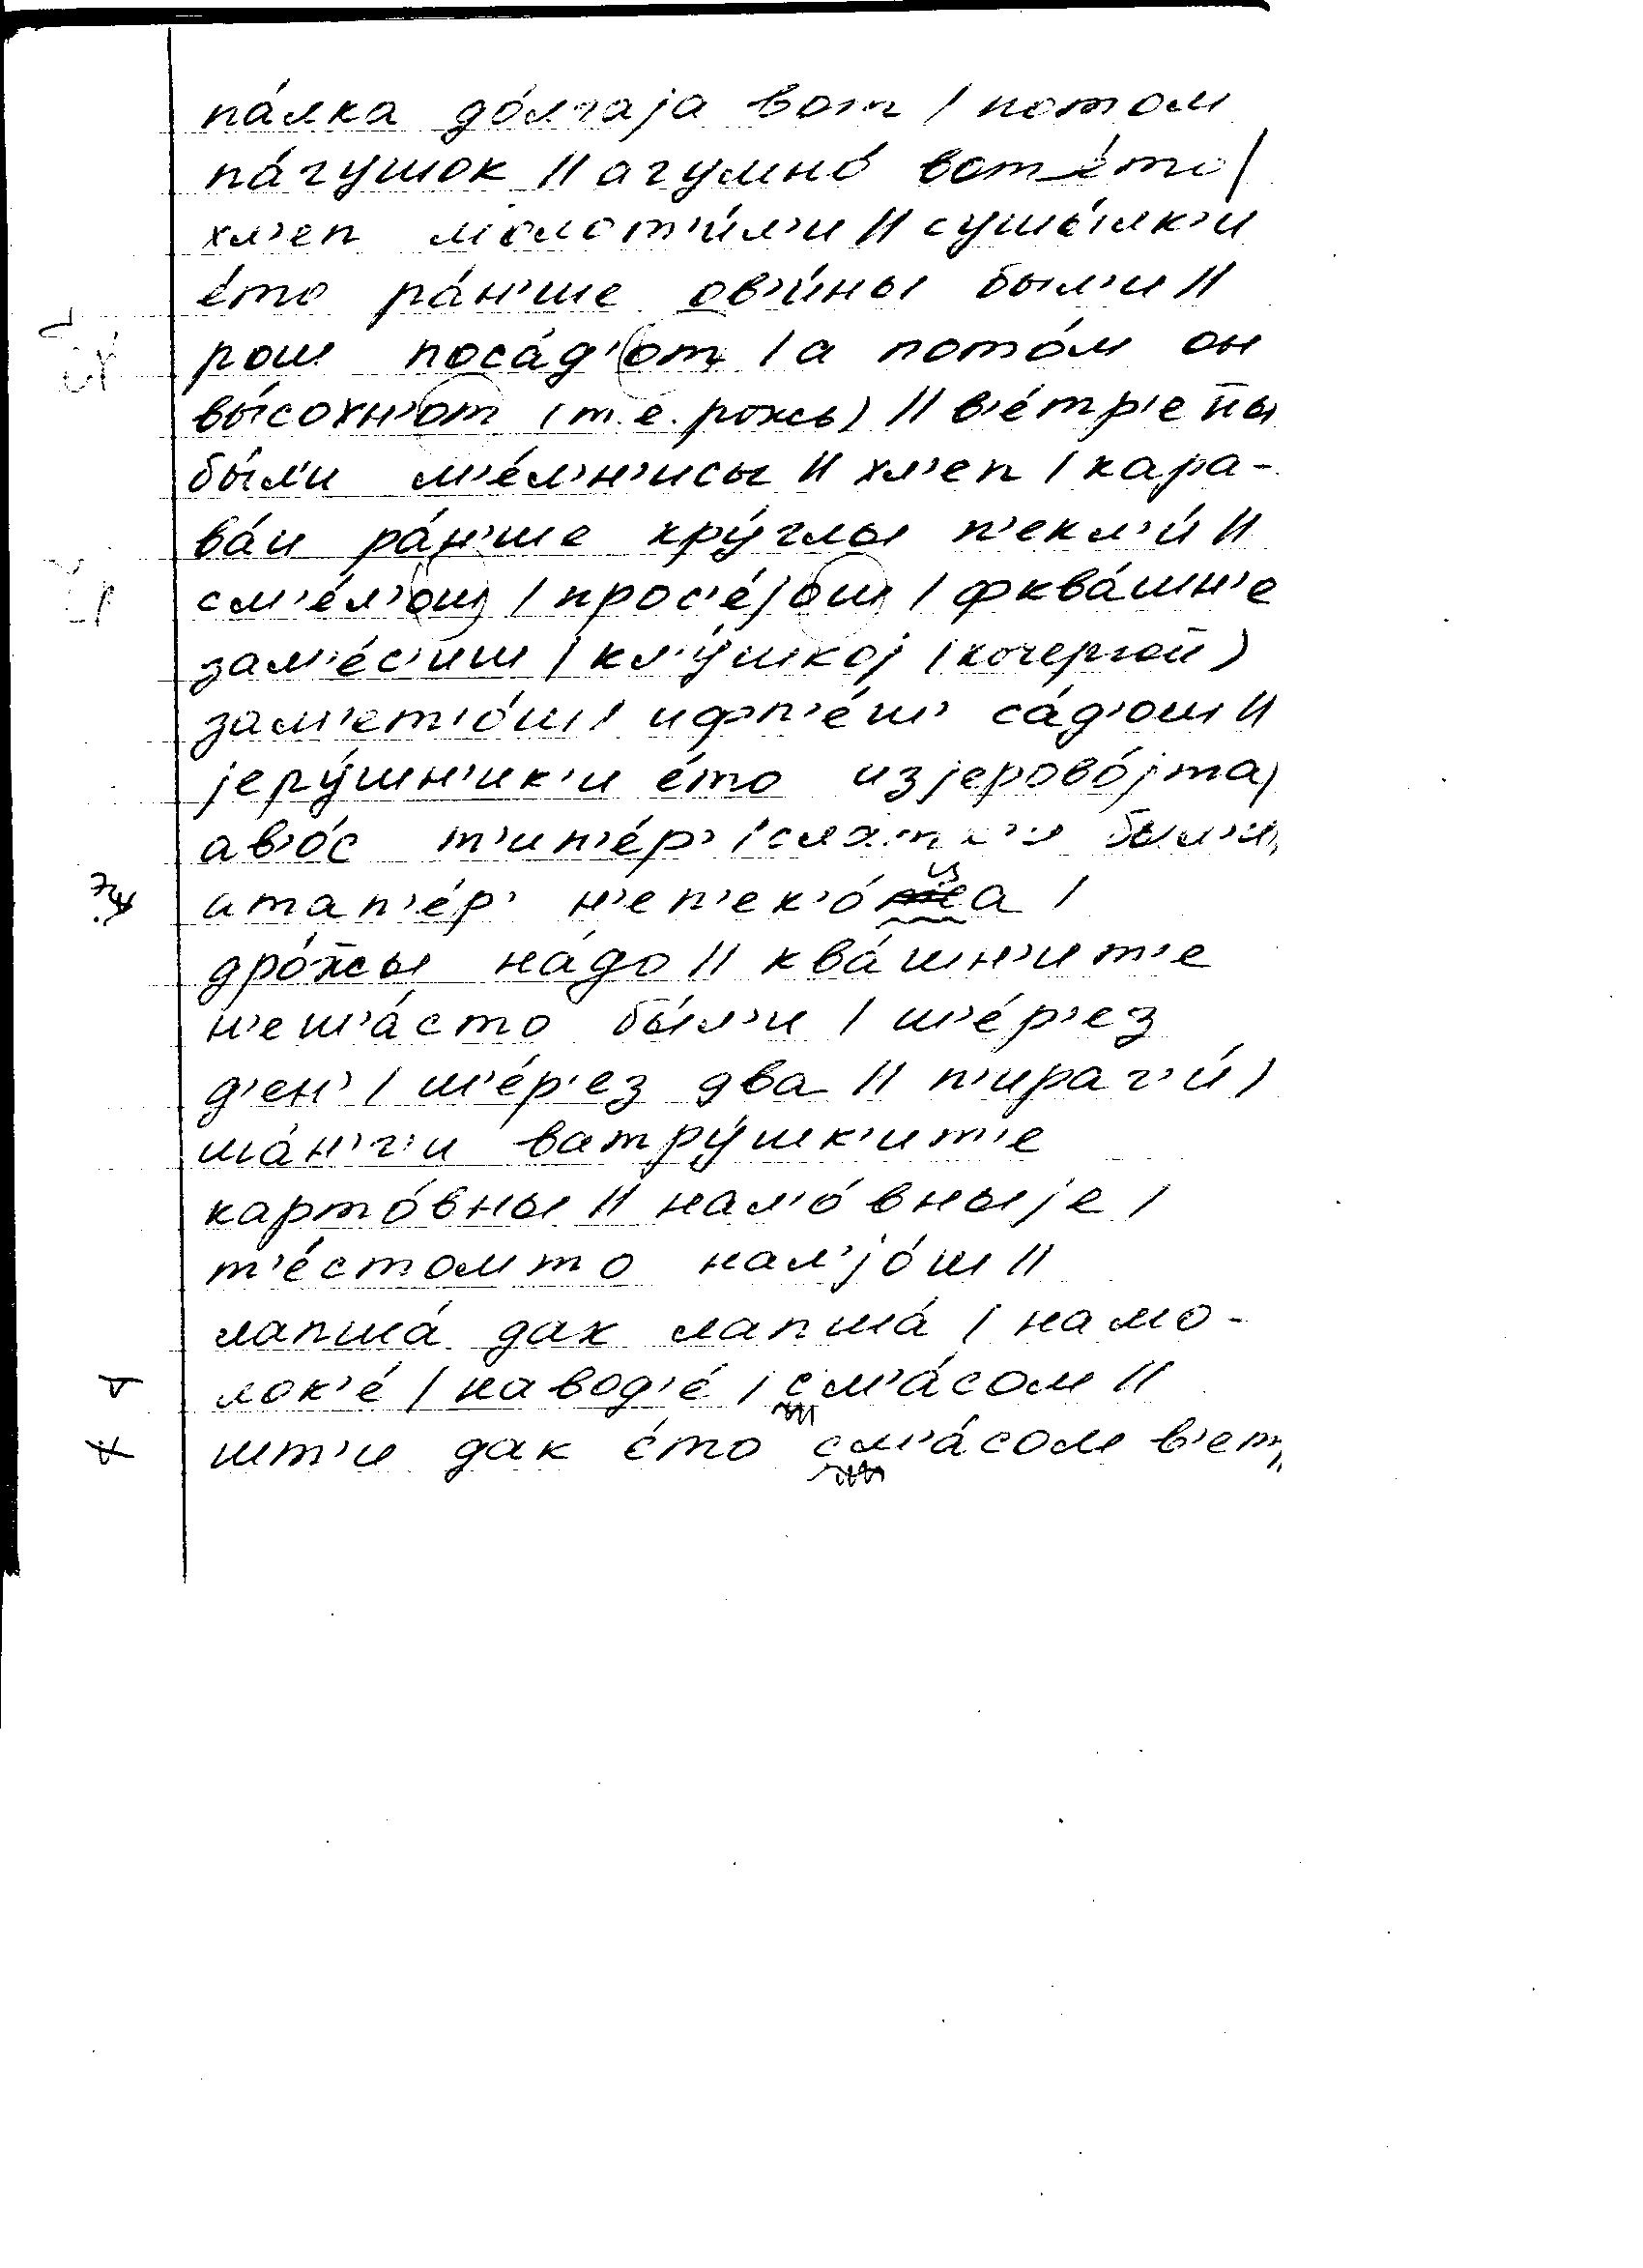 па́лка до́лгаjа вот / потом
па́гушок // агумно́ вот е́то /
хл'еп молот'и́л'и // сушы́лк'и
е́то ра́н'ше ов'и́ны был'и //
рош поса́д'от / а пото́м он
вы́сохн'от (т.е. рожь) // в'е́тр'ены
бы́л'и м'е́л'н'исы // хл'еп / кара-
ва́и ра́н'ше кру́глы п'екл'и́ //
см'е́л'ош / прос'е́jош / фква́шн'е
зам'е́с'иш / кл'у́шкоj (кочергой)
зам'ет'о́ш / ифп'е́ш' са́д'ош //
jеру́шн'ик'и е́то изjерово́jта /
ав'о́с т'ип'е́р' / был'и //
атап'е́р' н'еп'ек'о́ца /
дро́жы на́до // ква́шн'ит'е
н'еш'а́сто бы́л'и / ш'е́р'ез
д'ен' / ш'е́р'ез два // п'ираг'и́ /
ша́н'г'и ватру́шк'ит'е
карто́вны // нал'о́вныjе /
т'е́стомто нал'jо́ш //
лапша́ дак лапша́ / намо-
лок'е́ / на вод'е́ / см'а́сом //
шт'и дак е́то см'а́сом в'ет //